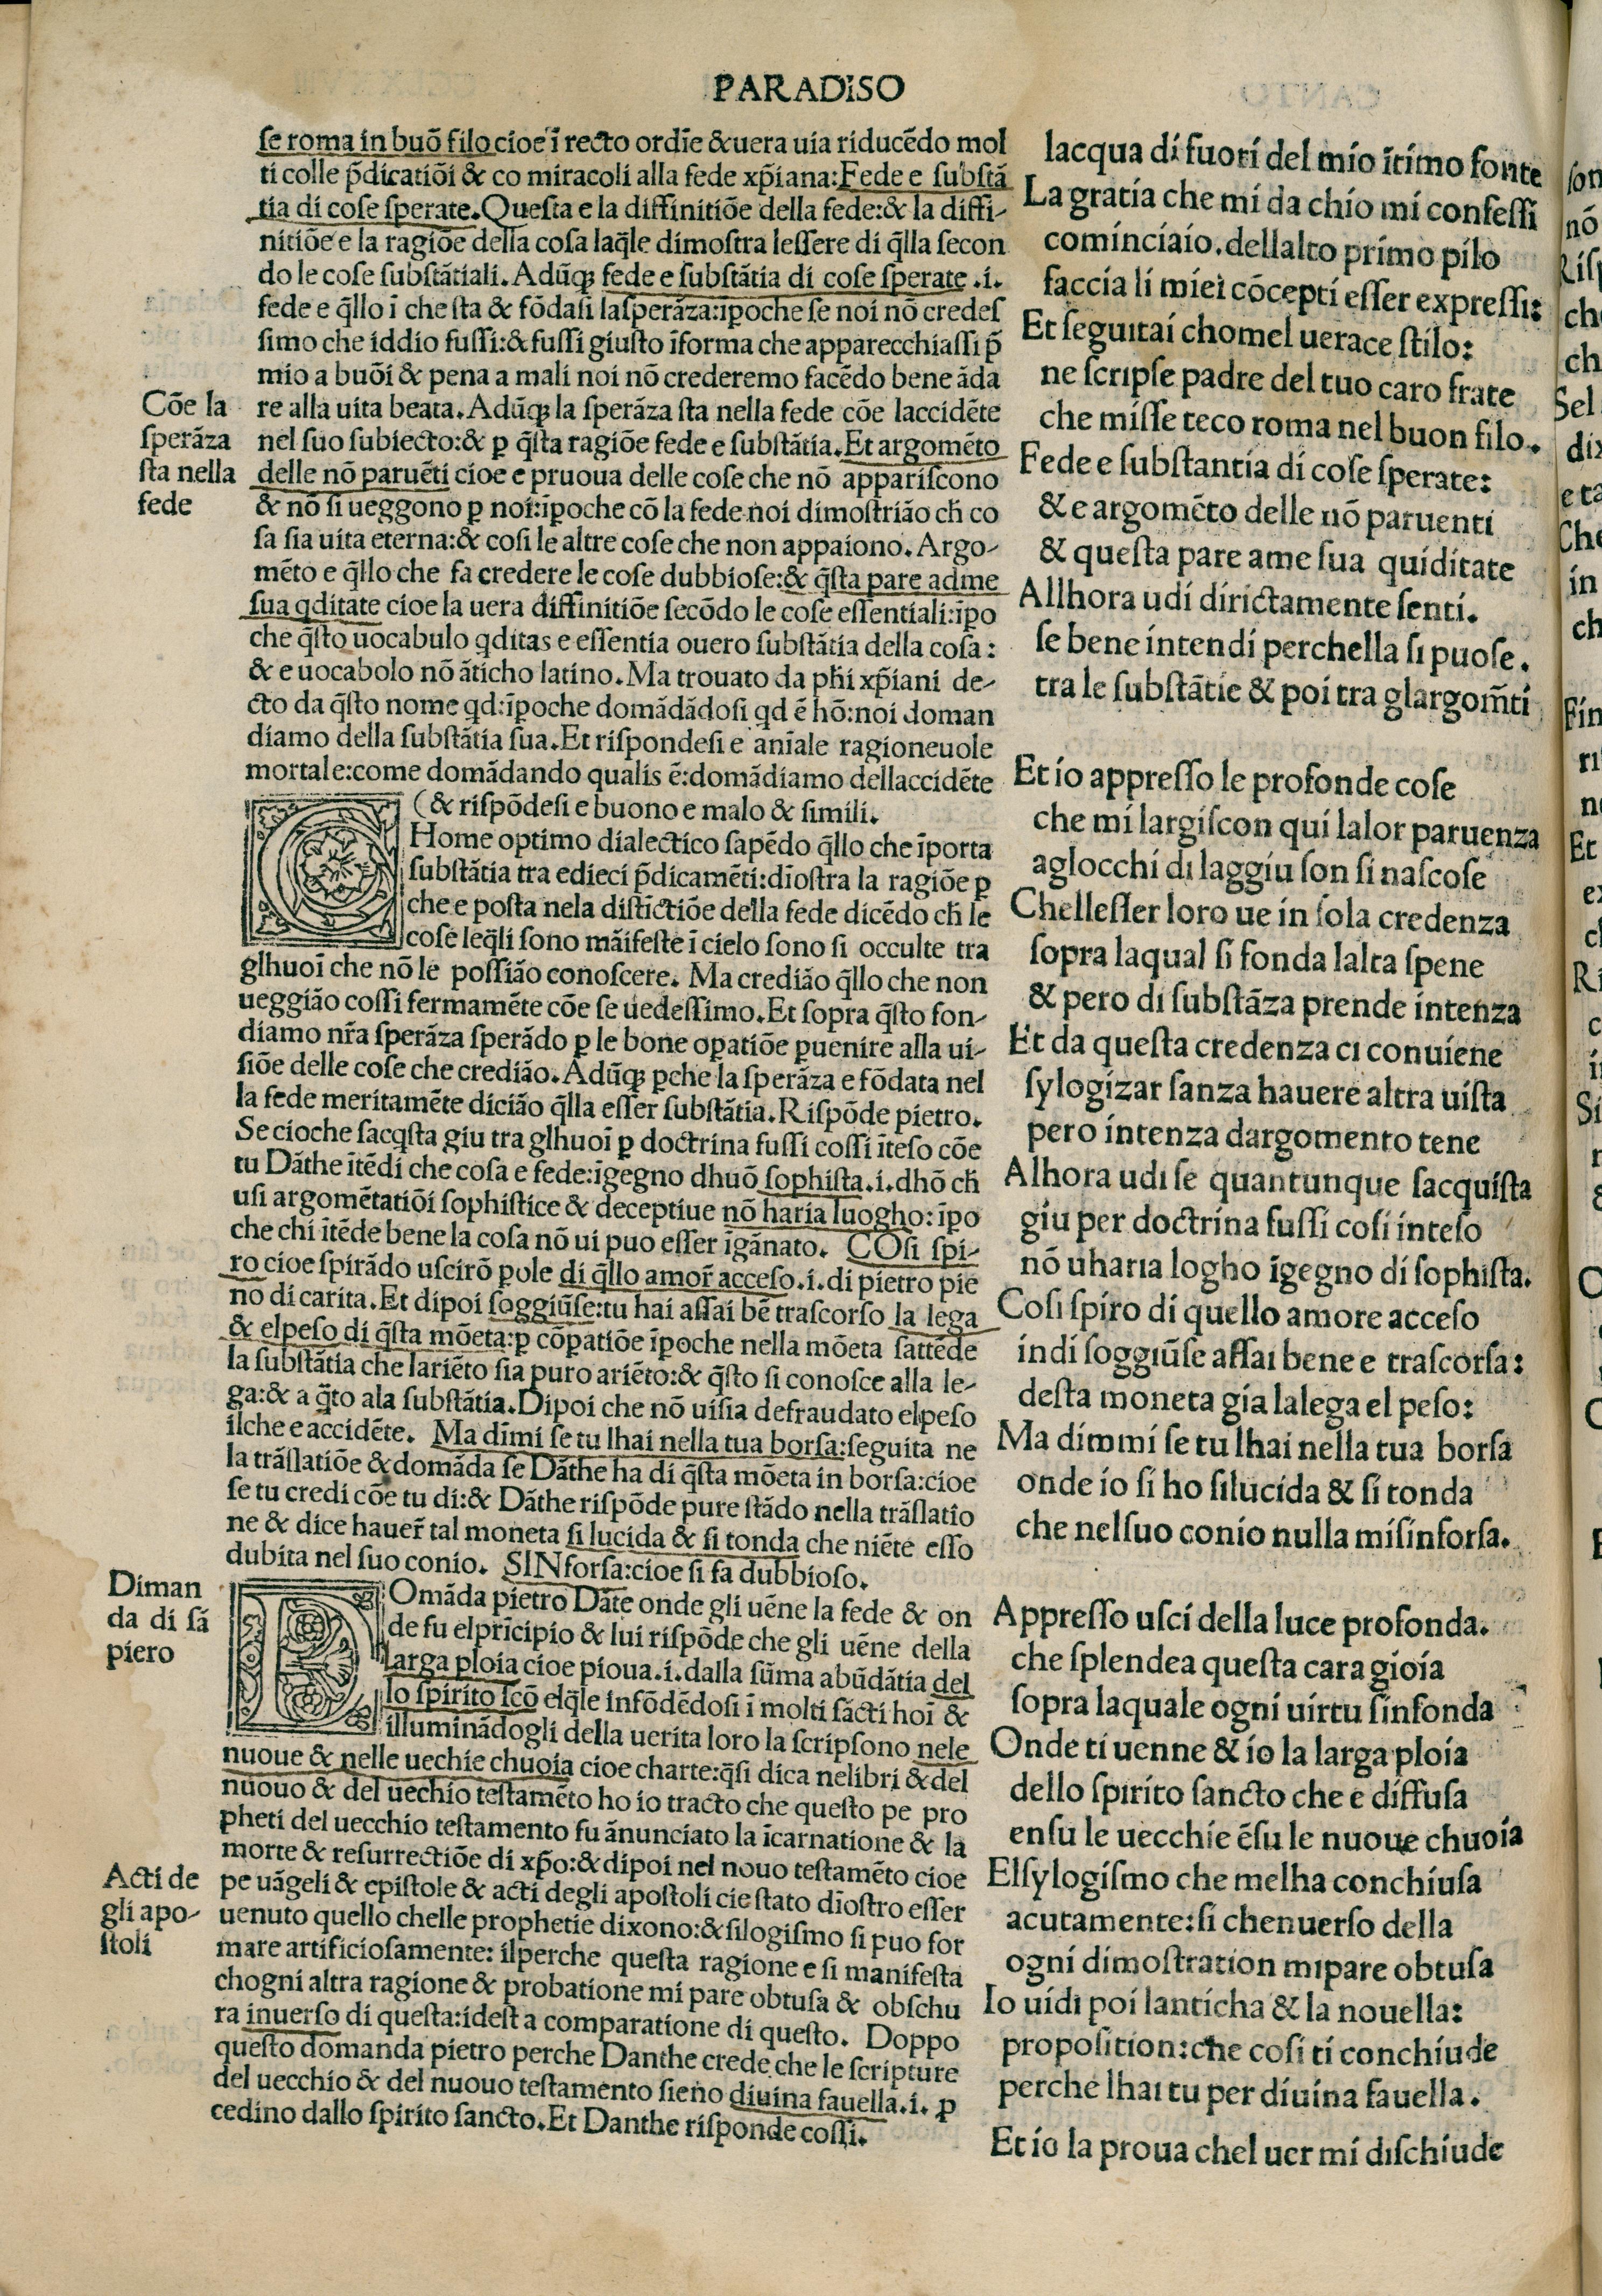 PARADiSO
se roma in buõ filo cioe ĩ recto ordĩe & uera uia riducẽdo mol
ti colle p̃dicatiõi & co miracoli alla fede xp̃iana: Fede e substã
tia di cose sperate. Questa e la diffinitiõe della fede: & la diffi-
nitiõe e la ragiõe della cosa laq̃le dimostra lessere di q̃lla secon
do le cose substãtiali. Adũqꝫ fede e substãtia di cose sperate .i.
fede e q̃llo ĩ che sta & fõdasi lasperãza: ĩꝑoche se noi nõ credes
simo che iddio fussi: & fussi giusto ĩforma che apparecchiassi p̃
mio a buõi & pena a mali noi nõ crederemo facẽdo bene ãda
re alla uita beata. Adũqꝫ la sperãza sta nella fede cõe laccidẽte
nel suo subiecto: & ꝑ q̃sta ragiõe fede e substãtia. Et argomẽto
delle nõ paruẽti cioe e pruoua delle cose che nõ appariscono
& nõ si ueggono ꝑ noi: ĩꝑoche cõ la fede noi dimostrião ch̃ co
sa sia uita eterna: & cosi le altre cose che non appaiono. Argo-
mẽto e q̃llo che fa credere le cose dubbiose: & q̃sta pare adme
sua qditate cioe la uera diffinitiõe secõdo le cose essentiali: ĩꝑo
che q̃sto uocabulo qditas e essentia ouero substãtia della cosa:
& e uocabolo nõ ãticho latino. Ma trouato da ph̃i xp̃iani de-
cto da q̃sto nome qd: ĩꝑoche domãdãdosi qd ẽ hõ: noi doman
diamo della substãtia sua. Et rispondesi e anĩale ragioneuole
mortale: come domãdando qualis ẽ: domãdiamo dellaccidẽte
(& rispõdesi e buono e malo & simili.
CHome optimo dialectico sapẽdo q̃llo che ĩporta
substãtia tra edieci p̃dicamẽti: dĩostra la ragiõe ꝑ
che e posta nela distĩctiõe della fede dicẽdo ch̃ le
cose leq̃li sono mãifeste ĩ cielo sono si occulte tra
glhuoĩ che nõ le possião conoscere. Ma credião q̃llo che non
ueggião cossi fermamẽte cõe se uedessimo. Et sopra q̃sto fon-
diamo nr̃a sperãza sperãdo ꝑ le bone oꝑatiõe ꝑuenire alla ui-
siõe delle cose che credião. Adũqꝫ ꝑche la sperãza e fõdata nel
la fede meritamẽte dicião q̃lla esser substãtia. Rispõde pietro.
Se cioche sacqsta giu tra glhuoĩ ꝑ doctrina fussi cossi ĩteso cõe
tu Dãthe ĩtẽdi che cosa e fede: ĩgegno dhuõ sophista .i. dhõ ch̃
usi argomẽtatiõi sophistice & deceptiue nõ haria luogho: ĩꝑo
che chi ĩtẽde bene la cosa nõ ui puo esser ĩgãnato. COsi spi-
ro cioe spirãdo uscirõ ꝑole di q̃llo amor̃ acceso .i. di pietro pie
no di carita. Et dipoi soggiũse: tu hai assai bẽ trascorso la lega
& elpeso di q̃sta mõeta: ꝑ cõꝑatiõe ĩꝑoche nella mõeta sattẽde
la substãtia che lariẽto sia puro ariẽto: & q̃sto si conosce alla le-
ga: & a q̃to ala substãtia. Dipoi che nõ uisia defraudato elpeso
ilche e accidẽte. Ma dĩmi se tu lhai nella tua borsa: seguita ne
la trãslatiõe & domãda se Dãthe ha di q̃sta mõeta in borsa: cioe
se tu credi cõe tu di: & Dãthe rispõde pure stãdo nella trãslatio
ne & dice hauer̃ tal moneta si lucida & si tonda che niẽte esso
dubita nel suo conio. SINforsa: cioe si fa dubbioso.
DOmãda pietro Dãte onde gli uẽne la fede & on
de fu elprĩcipio & lui rispõde che gli uẽne della
larga ploia cioe pioua .i. dalla sũma abũdãtia del
lo spirito sc̃o elq̃le infõdẽdosi ĩ molti sãcti hoĩ &
illuminãdogli della uerita loro la scripsono nele
nuoue & nelle uechie chuoia cioe charte: q̃si dica nelibri & del
nuouo & del uechio testamẽto ho io tracto che questo pe pro
pheti del uecchio testamento fu ãnunciato la ĩcarnatione & la
morte & resurrectiõe di xp̃o: & dipoi nel nouo testamẽto cioe
pe uãgeli & epistole & acti degli apostoli cie stato dĩostro esser
uenuto quello chelle prophetie dixono: & silogismo si puo for
mare artificiosamente: ilperche questa ragione e si manifesta
chogni altra ragione & probatione mi pare obtusa & obschu
ra inuerso di questa: idest a comparatione di questo. Doppo
questo domanda pietro perche Danthe crede che le scripture
del uecchio & del nuouo testamento sieno diuina fauella .i. ꝓ
cedino dallo spirito sancto. Et Danthe risponde cossi.
Cõe la
sperãza
sta nella
fede
Diman
da di sã
piero
Acti de
gli apo-
stoli
lacqua di fuori del mio ĩtimo fonte
La gratia che mi da chio mi confessi
cominciaio. dellalto primo pilo
faccia li miei cõcepti esser expressi:
Et seguitai chomel uerace stilo:
ne scripse padre del tuo caro frate
che misse teco roma nel buon filo.
Fede e substantia di cose sperate:
& e argomẽto delle nõ paruenti
& questa pare ame sua quiditate
Allhora udi dirictamente senti.
se bene intendi perchella si puose.
tra le substãtie & poi tra glargom̃ti
Et io appresso le profonde cose
che mi largiscon qui lalor paruenza
aglocchi di laggiu son si nascose
Chellesser loro ue in sola credenza
sopra laqual si fonda lalta spene
& pero di substãza prende intenza
Et da questa credenza ci conuiene
sylogizar sanza hauere altra uista
pero intenza dargomento tene
Alhora udi se quantunque sacquista
giu per doctrina fussi cosi inteso
nõ uharia logho ĩgegno di sophista.
Cosi spiro di quello amore acceso
indi soggiũse assai bene e trascorsa:
desta moneta gia lalega el peso:
Ma dimmi se tu lhai nella tua borsa
onde io si ho silucida & si tonda
che nelsuo conio nulla misinforsa.
Appresso usci della luce profonda.
che splendea questa cara gioia
sopra laquale ogni uirtu sinfonda
Onde ti uenne & io la larga ploia
dello spirito sancto che e diffusa
ensu le uecchie ẽsu le nuoue chuoia
Elsylogismo che melha conchiusa
acutamente: si chenuerso della
ogni dimostration mipare obtusa
Io uidi poi lanticha & la nouella:
proposition: che cosi ti conchiude
perche lhai tu per diuina fauella.
Et io la proua chel uer mi dischiude